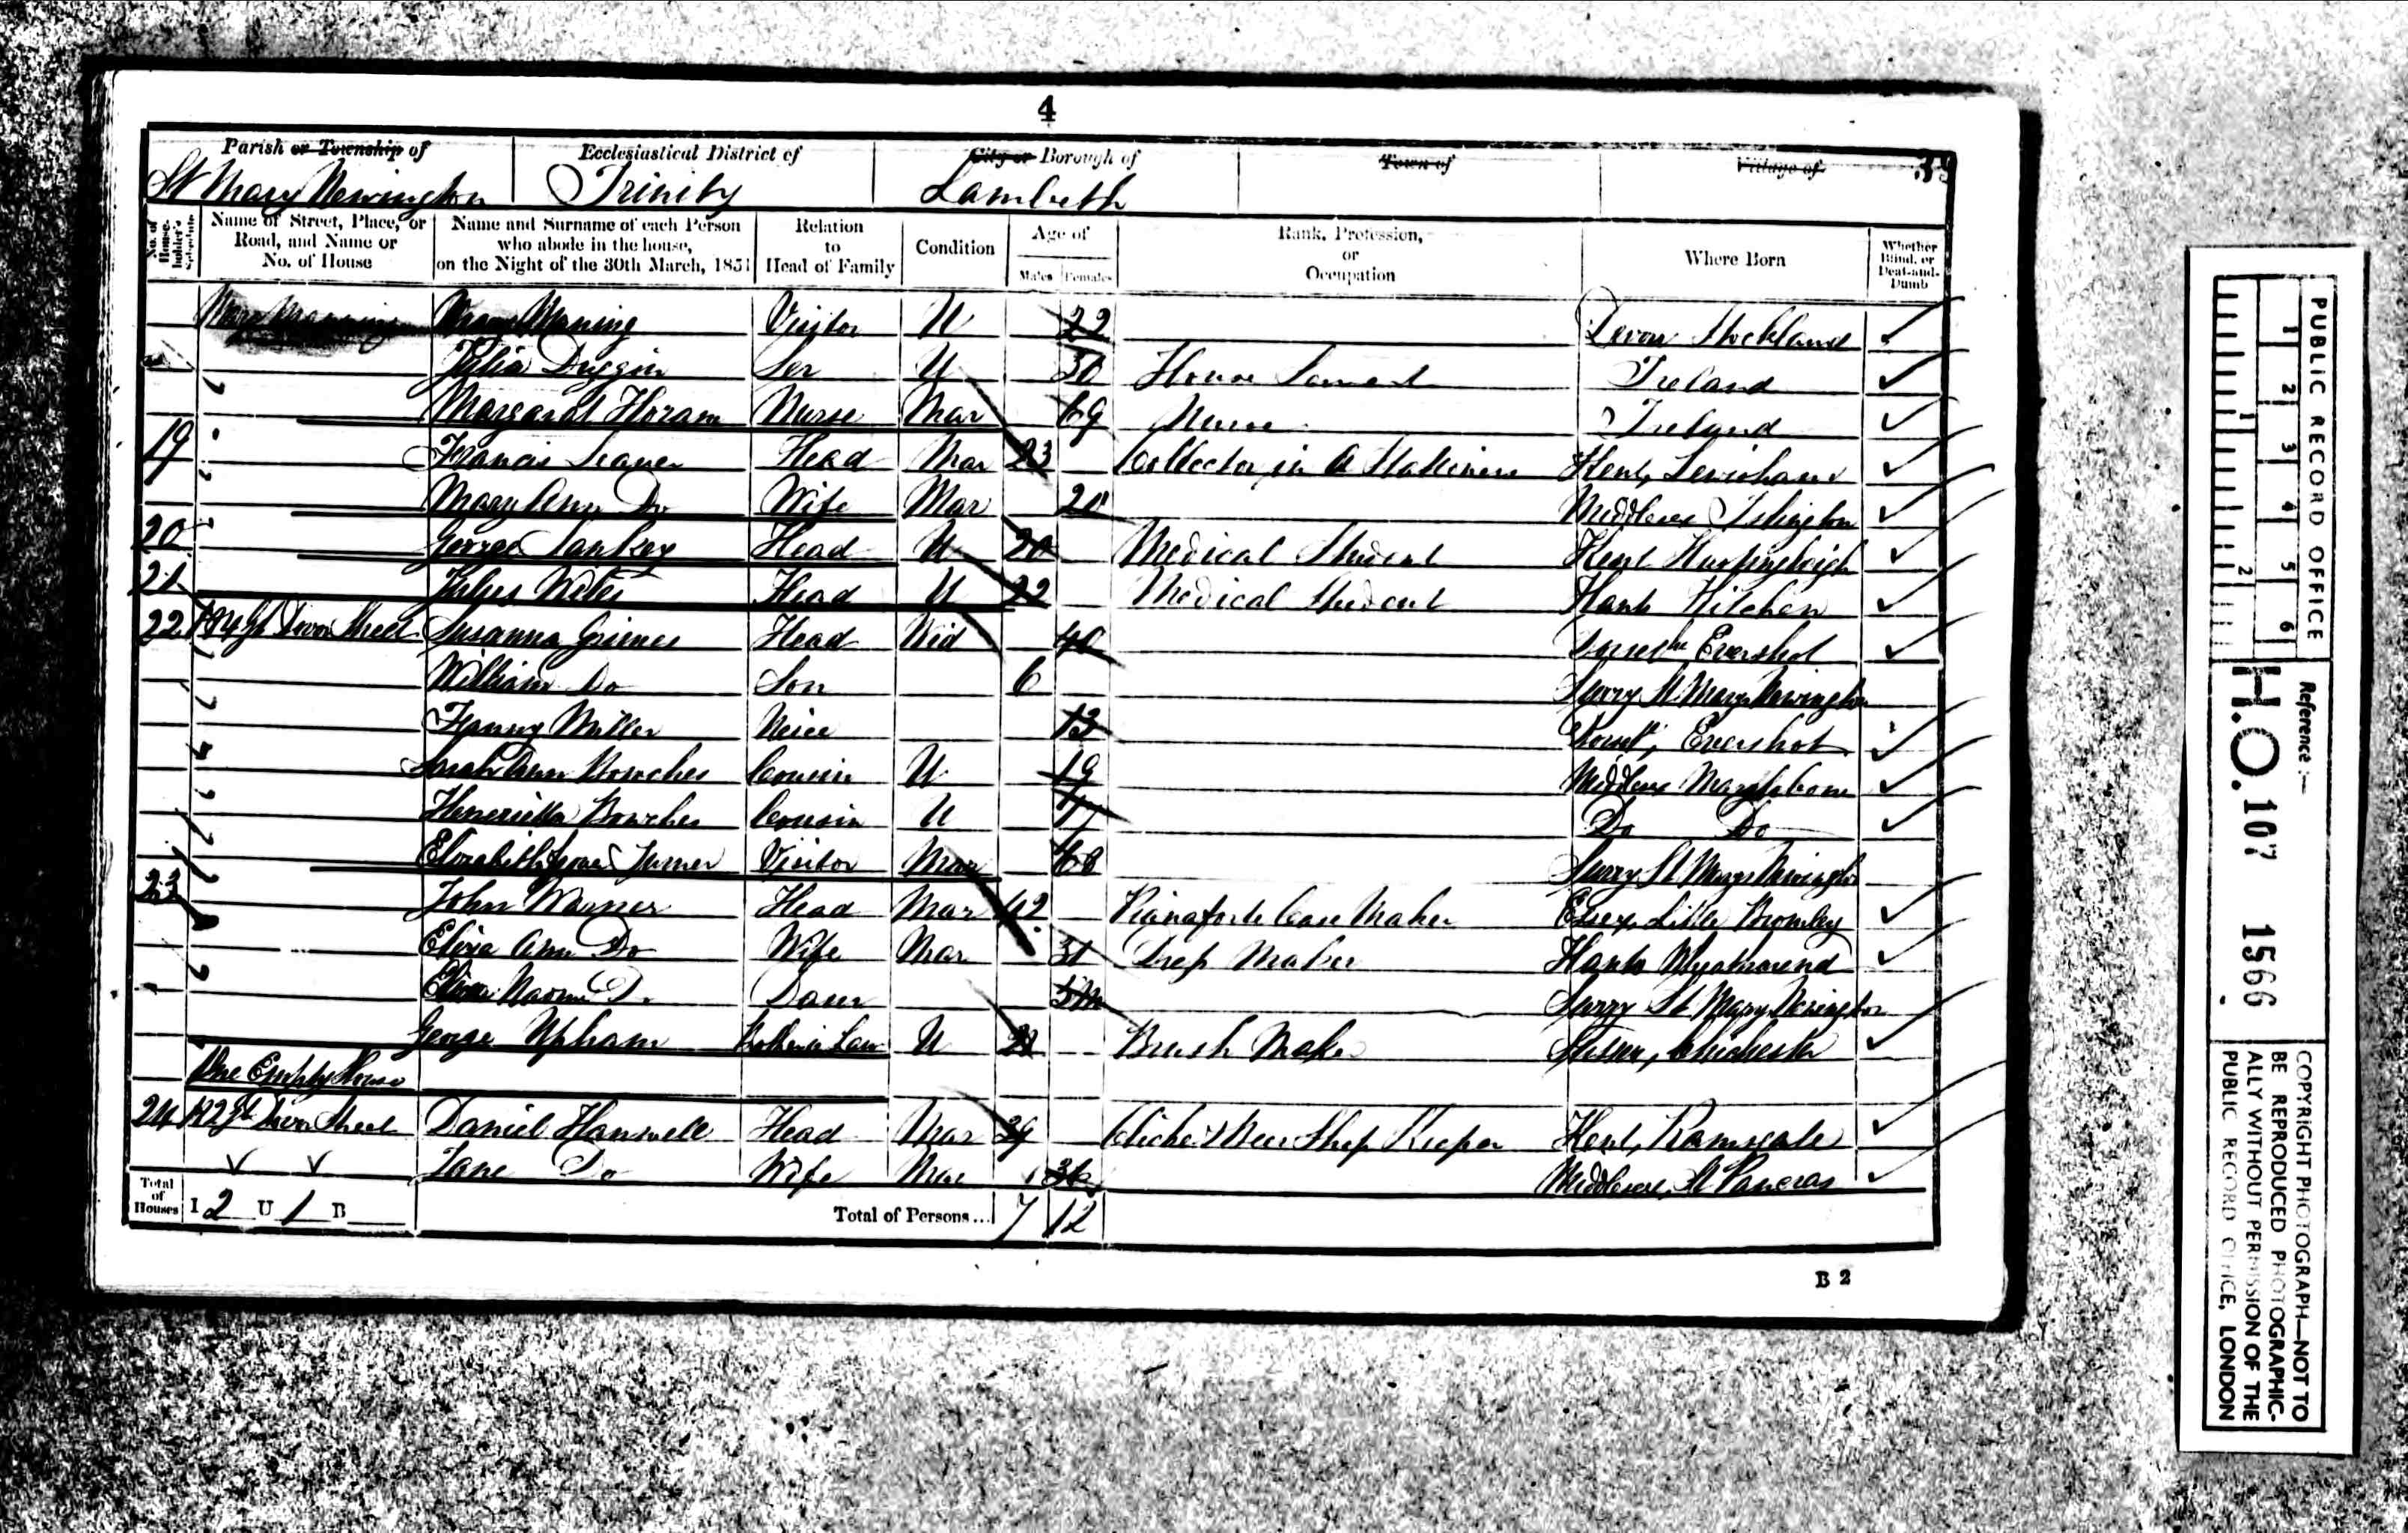 4
Parish or Township of
Ecclesiastical District of
City or Borough of
Town of
Village of
St Mary Newington
Trinity
Lambeth
No. of House-holder's Schedule
Name of Street, Place, or Road, and Name or No. of House
Name and Surname of each Person who abode in the house, on the Night of the 30th March, 1851
Relation to Head of Family
Condition
Age of
Males
Females
Rank, Profession, or Occupation
Where Born
Whether Blind, or Deaf-and-Dumb
Mary Manning Mary Maning Visitor U 22 Devon Stockland
Julia Duggin Ser U 30 House Servant Ireland
Margaret Horam Nurse Mar 69 Nurse Ireland
19 Francis Mar 23 Collector in a Kent, Lewisham
Mary Ann Do Wife Mar Middlesex Islington
20 George Sankey Head U 20 Medical Student Kent
21 Head U 22 Medical Student Hants
22 Dover Street Susanna Grimes Head Wid 40 Evershot
William Do Son 6 Surry St Mary Newington
Fanny Miller Neice 13 Evershot
Sarah Ann Bowches Cousin U 19 Middlesex Marylebone
Henrietta Bowches Cousin U Do Do
Elizabeth Turner Visitor Mar Surry St Marys Newington
23 John Warner Head Mar 42 Pianaforte Case Maker Essex, Little Bromley
Eliza Ann Do Wife Mar 31 Dress Maker Hants
Naomi Do Daur Surry St Mary Newington
George Upham Brother in Law U Brush Maker Sussex, Chichester
One Empty House
24 Dover Street Daniel Hanwell Head Mar 39 Beer Shop Keeper Kent, Ramsgate
Jane Do Wife Mar 36 Middlesex, St Pancras
Total of Houses I 2 U 1 B
Total of Persons... 7 12
B 2
PUBLIC RECORD OFFICE
1 2 3 4 5 6
1 2
Reference:—
H.O. 107 1566
COPYRIGHT PHOTOGRAPH—NOT TO
BE REPRODUCED PHOTOGRAPHIC-
ALLY WITHOUT PERMISSION OF THE
PUBLIC RECORD OFFICE, LONDON